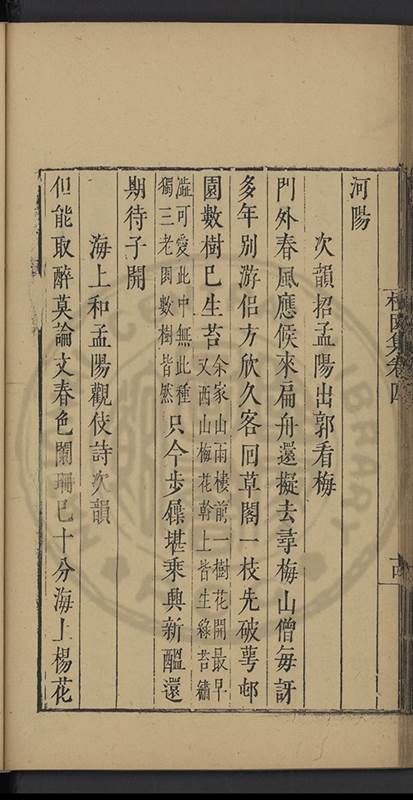 河陽
次韻招孟陽出郭看梅
門外春風應候來扁舟還擬去尋梅山僧每訝
多年別游侶方欣久客回草閣一枝先破萼邨
園數樹巳生苔余家山雨樓前一樹花開最早
又西山梅花幹上皆生綠苔繡
澁可愛此中無此種
獨三老園數樹皆然只今步屧堪乘興新醞還
期待子開
海上和孟陽觀伎詩次韻
但能取醉莫論文春色闌珊巳十分海上楊花
卷四